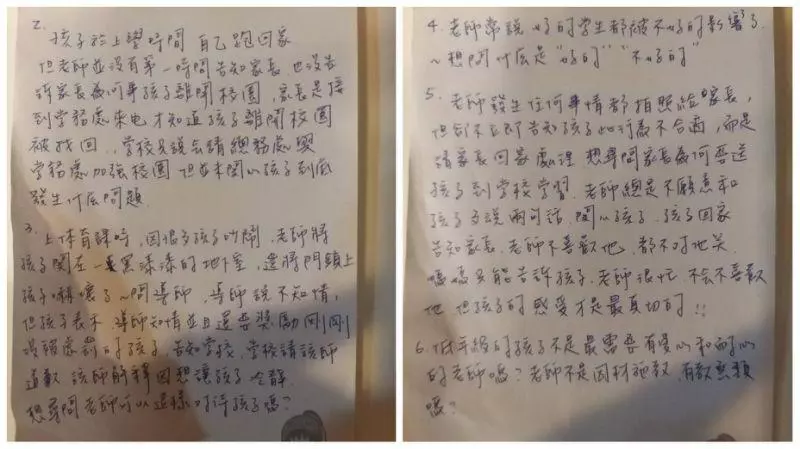 2.
孩子於上學時間 自己跑回家
但老師並沒有第一時間告知家長,也沒告
訴家長為何事孩子離開校園,家長是接
到學務處來電才知道孩子離開校園
被找回,學校只說會請總務處與
學務處加強校園 但並未關心孩子到底
發生什么問題.
3. 上体育課時,因很多孩子吵鬧,老師將
孩子関在一黑漆漆的地下室,還將門鎖上
孩子嚇壞了~問導師,導師說不知情,
但孩子表示,導師知情並且還要獎勵剛剛
被處罰的孩子,告知學校,學校請該師
道歉 該師解釋因想讓孩子冷靜.
想尋問老師可以這樣对待孩子嗎?
4. 老師常說 好的学生都被不好的影響了
~想問什么是"好的" "不好的"
5. 老師發生任何事情都拍照給家長,
但卻不立即告知孩子此行為不合適,而是
請家長回家處理 想尋問家長為何要送
孩子到学校学習.老師總是不願意和
孩子多說兩句話,関心孩子.孩子回家
告知家長.老師不喜歡他,都不对他笑.
媽媽只能告訴孩子.老師很忙.不会不喜歡
他 但孩子的感受才是最真切的!!
6. 低年級的孩子不是最需要有愛心和耐心
的老師嗎?老師不是因材施教,有教無類
嗎?